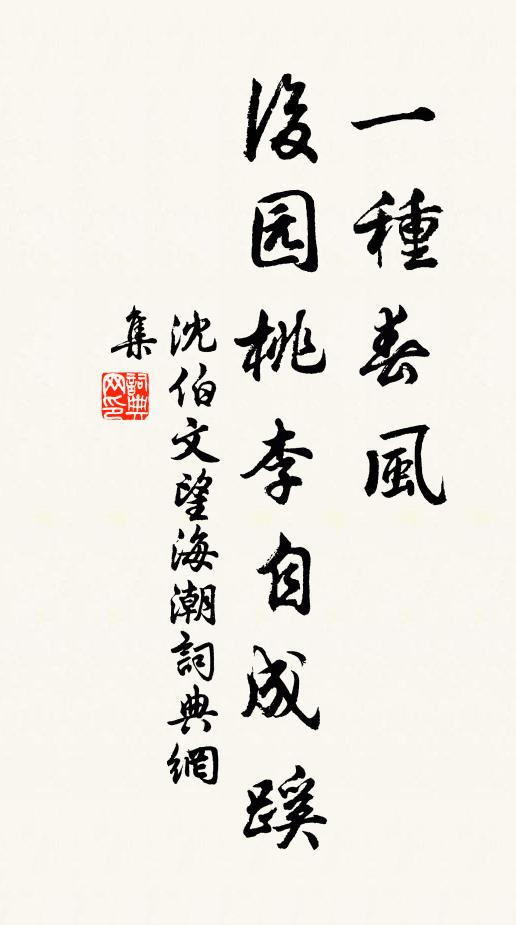 一種春風
後园桃李自成蹊
沈伯文望海潮詞典網
集
詞典网印